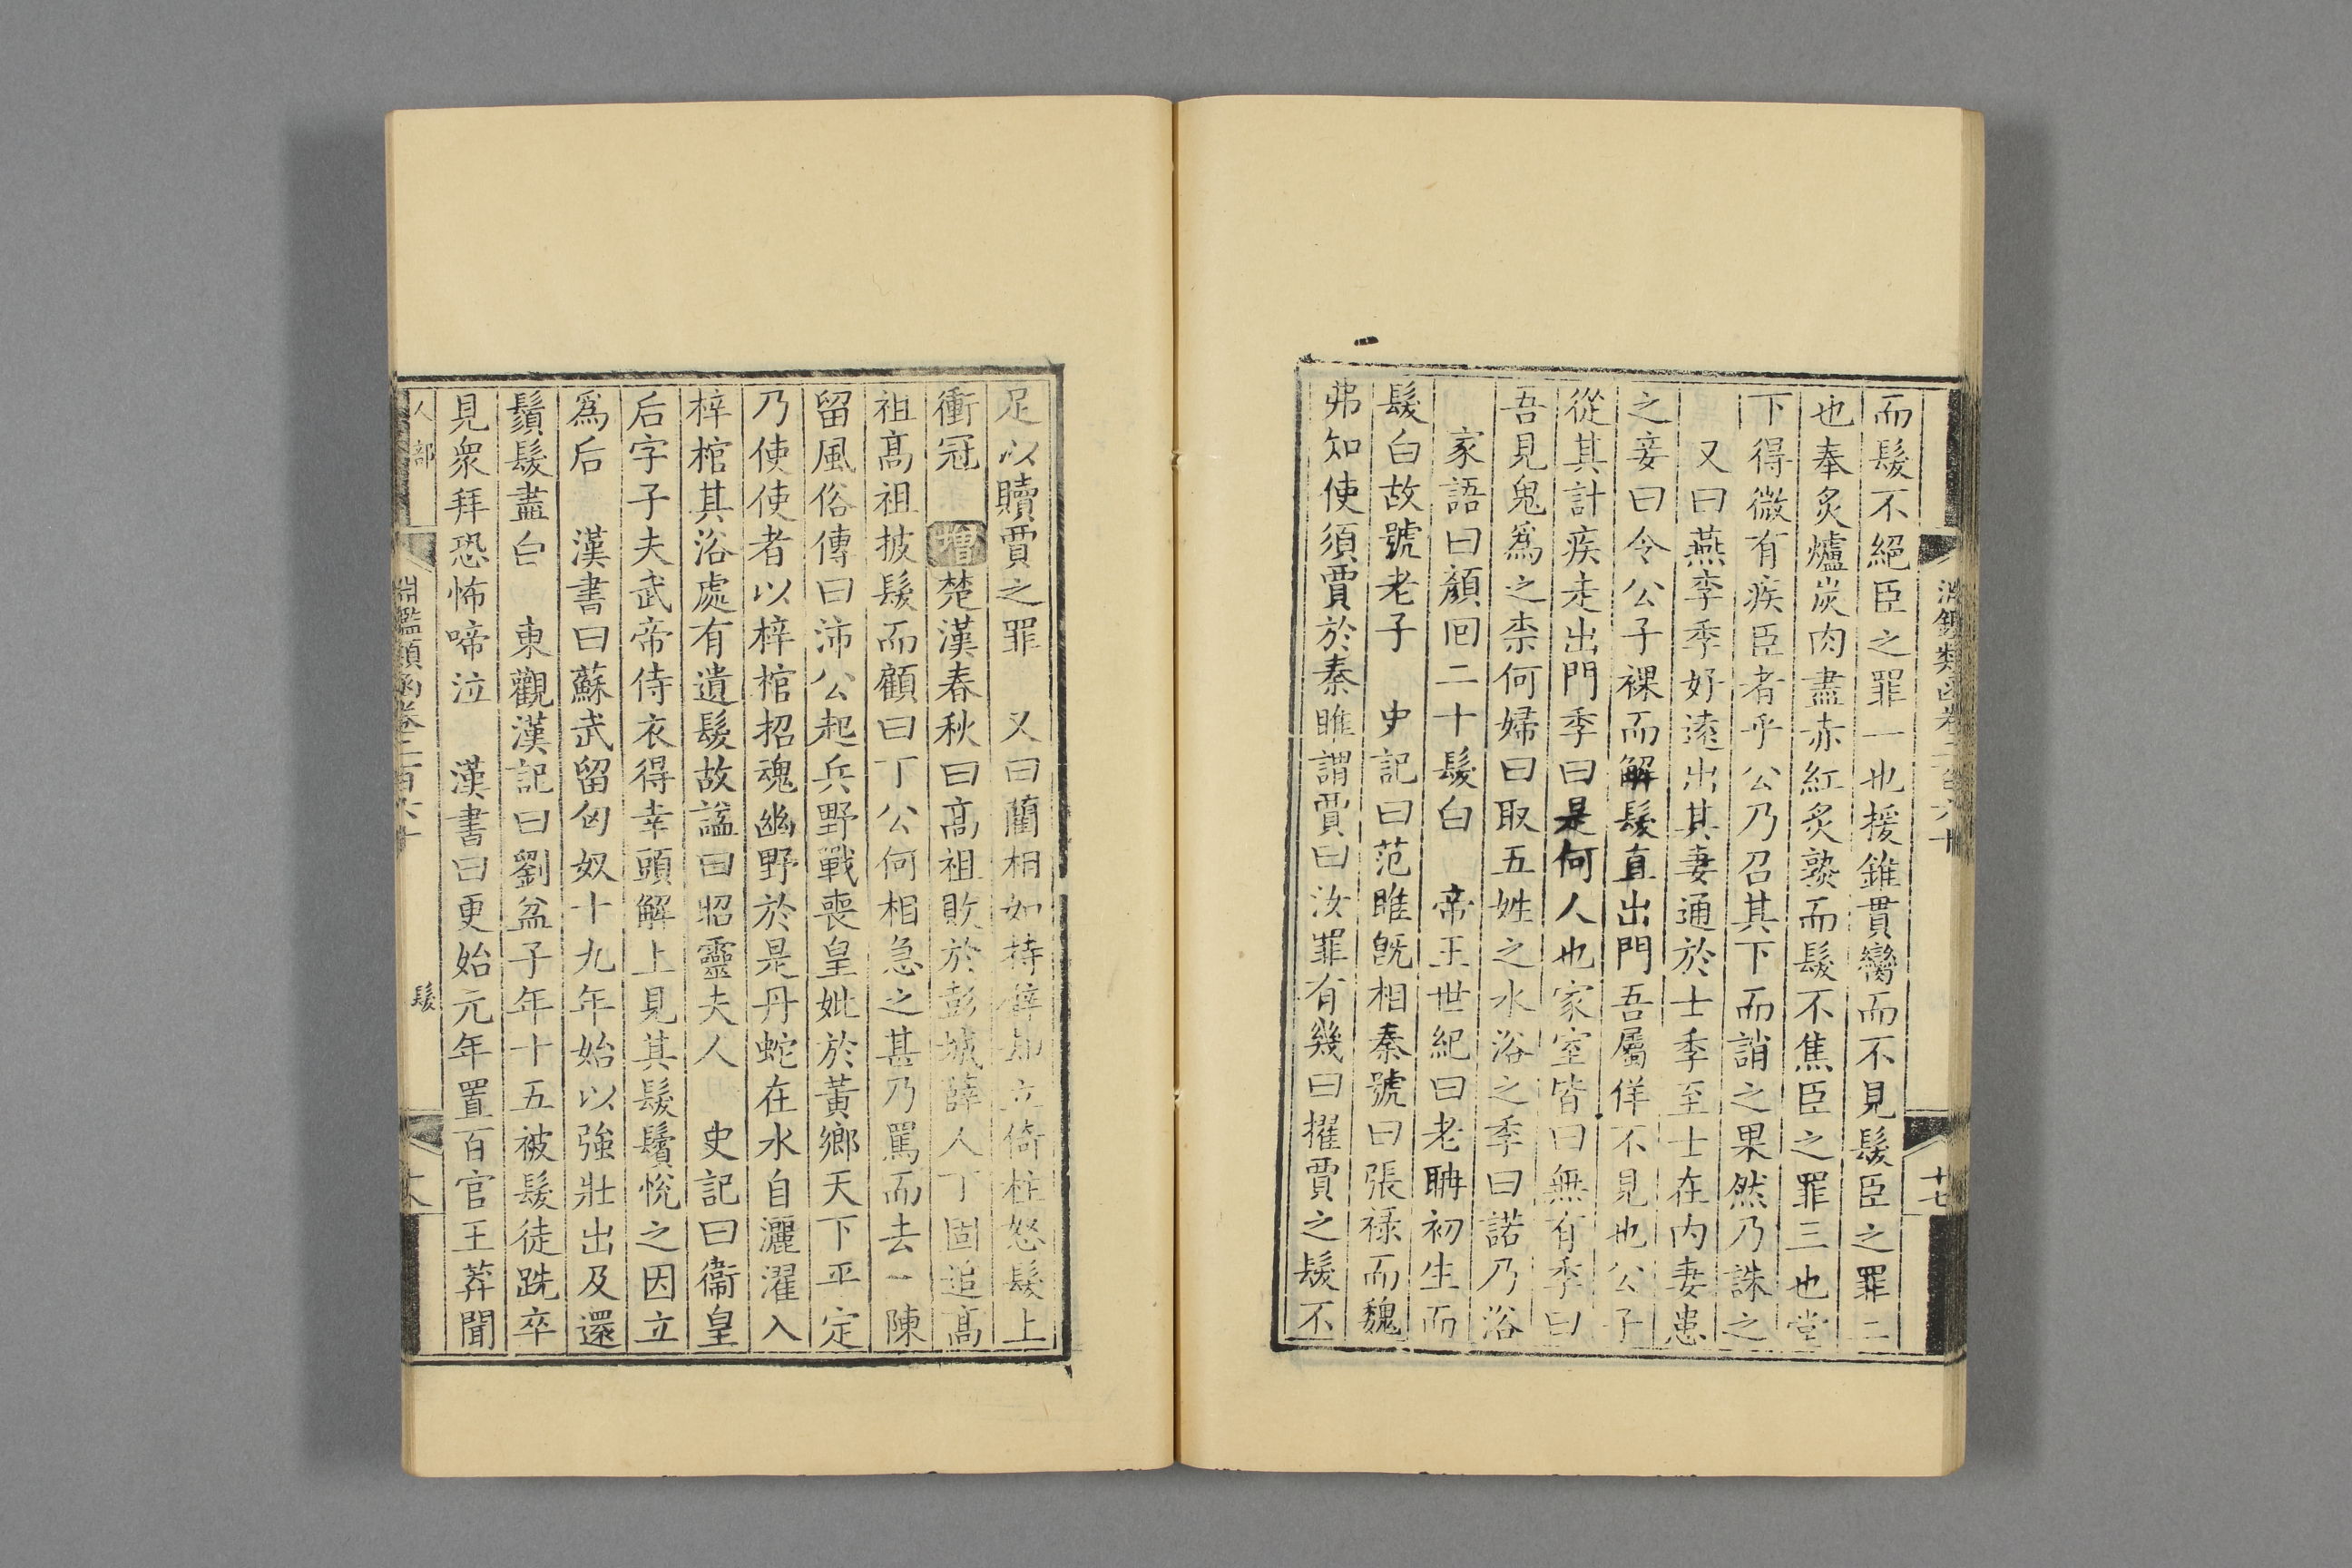 淵鑑類函卷二百六十
十七
而髮不絕臣之罪一也援錐貫臠而不見髮臣之罪二
也奉炙爐炭肉盡赤紅炙熟而髮不焦臣之罪三也堂
下得微有疾臣者乎公乃召其下而誚之果然乃誅之
又曰燕李季好遠出其妻通於士季至士在内妻患
之妾曰令公子裸而解髮直出門吾屬佯不見也公子
從其計疾走出門季曰是何人也家室皆曰無有季曰
吾見鬼爲之柰何婦曰取五姓之水浴之季曰諾乃浴
家語曰顏囘二十髮白　帝王世紀曰老聃初生而
髮白故號老子　史記曰范雎旣相秦號曰張祿而魏
弗知使須賈於秦雎謂賈曰汝罪有幾曰擢賈之髮不
足以贖賈之罪　又曰藺相如持璧却立倚柱怒髮上
衝冠　增楚漢春秋曰高祖敗於彭城薛人丁固追高
祖高祖披髮而顧曰丁公何相急之甚乃罵而去　陳
留風俗傳曰沛公起兵野戰喪皇妣於黃鄉天下平定
乃使使者以梓棺招魂幽野於是丹蛇在水自灑濯入
梓棺其浴處有遺髮故諡曰昭靈夫人　史記曰衞皇
后字子夫武帝侍衣得幸頭解上見其髮鬢悅之因立
爲后　漢書曰蘇武留匈奴十九年始以強壯出及還
鬚髮盡白　東觀漢記曰劉盆子年十五被髮徒跣卒
見衆拜恐怖啼泣　漢書曰更始元年置百官王莽聞
人部
淵鑑類函卷二百六十
髮
十八